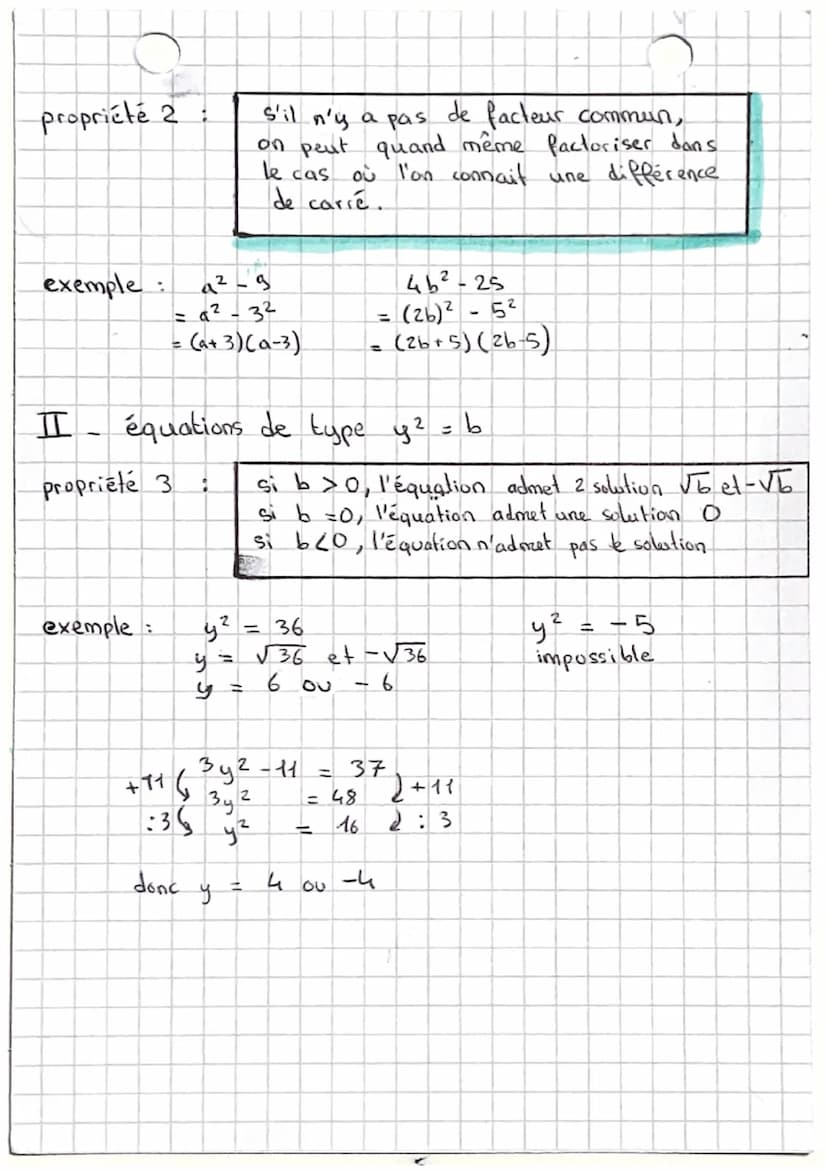 propriété 2 : s'il n'y a pas de facteur commun,
on peut quand même factoriser dans
le cas où l'on connait une différence
de carré.
exemple : a² - 9 4b² - 25
= a² - 3² = (2b)² - 5²
= (a+3)(a-3) = (2b+5)(2b-5)
II - équations de type y² = b
propriété 3 : si b > 0, l'équation admet 2 solution √b et -√b
si b = 0, l'équation admet une solution 0
si b < 0, l'équation n'admet pas de solution
exemple : y² = 36 y² = -5
y = √36 et -√36 impossible
y = 6 ou - 6
+11 3y² - 11 = 37 +11
3y² = 48
:3 y² = 16 : 3
donc y = 4 ou -4